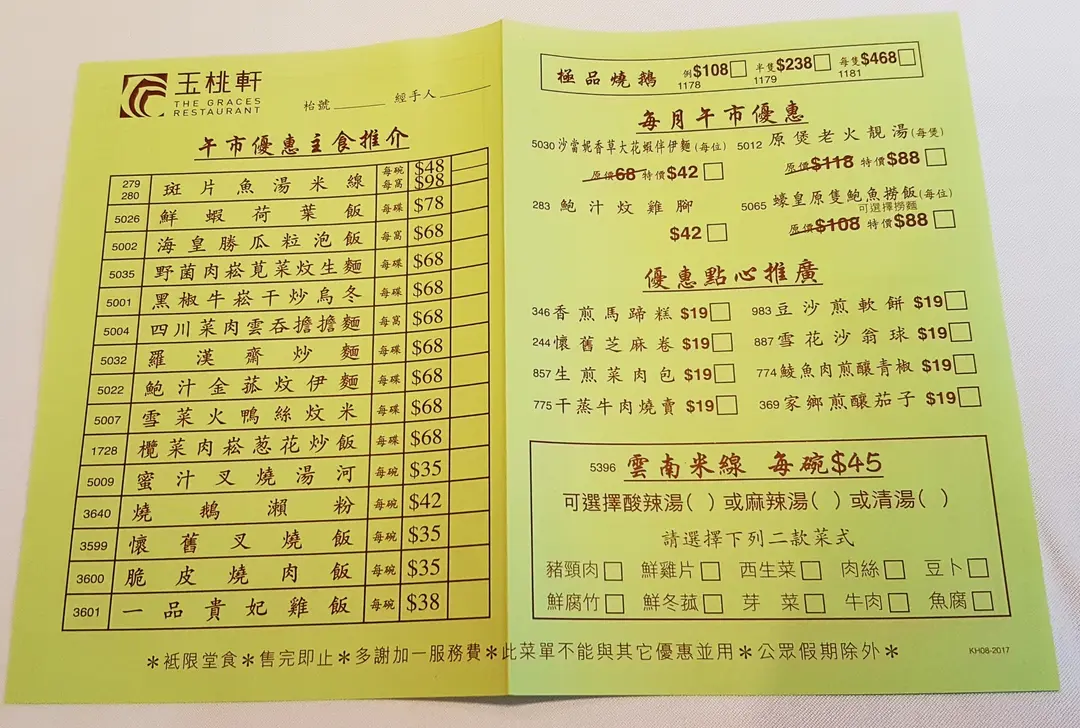 玉桃軒
THE GRACES
RESTAURANT
枱號______ 經手人______
午市優惠主食推介
279 280 斑片魚湯米線 每碗 $48 每窩 $98
5026 鮮蝦荷葉飯 每碟 $78
5002 海皇勝瓜粒泡飯 每窩 $68
5035 野菌肉崧莧菜炆生麵 每碟 $68
5001 黑椒牛崧干炒烏冬 每碟 $68
5004 四川菜肉雲吞擔擔麵 每窩 $68
5032 羅漢齋炒麵 每碟 $68
5022 鮑汁金菇炆伊麵 每碟 $68
5007 雪菜火鴨絲炆米 每碟 $68
1728 欖菜肉崧葱花炒飯 每碟 $68
5009 蜜汁叉燒湯河 每碗 $35
3640 燒鵝瀨粉 每碗 $42
3599 懷舊叉燒飯 每碗 $35
3600 脆皮燒肉飯 每碗 $35
3601 一品貴妃雞飯 每碗 $38
極品燒鵝 例$108 半隻$238 每隻$468
1178 1179 1181
每月午市優惠
5030 沙當妮香草大花蝦伴伊麵(每位)
原價68 特價$42
5012 原煲老火靚湯(每煲)
原價$118 特價$88
283 鮑汁炆雞腳
$42
5065 蠔皇原隻鮑魚撈飯(每位)
可選擇撈麵
原價$108 特價$88
優惠點心推廣
346 香煎馬蹄糕 $19 983 豆沙煎軟餅 $19
244 懷舊芝麻卷 $19 887 雪花沙翁球 $19
857 生煎菜肉包 $19 774 鯪魚肉煎釀青椒 $19
775 干蒸牛肉燒賣 $19 369 家鄉煎釀茄子 $19
5396 雲南米線 每碗$45
可選擇酸辣湯( )或麻辣湯( )或清湯( )
請選擇下列二款菜式
豬頸肉 鮮雞片 西生菜 肉絲 豆卜
鮮腐竹 鮮冬菰 芽菜 牛肉 魚腐
＊祗限堂食＊售完即止＊多謝加一服務費＊此菜單不能與其它優惠並用＊公眾假期除外＊
KH08-2017